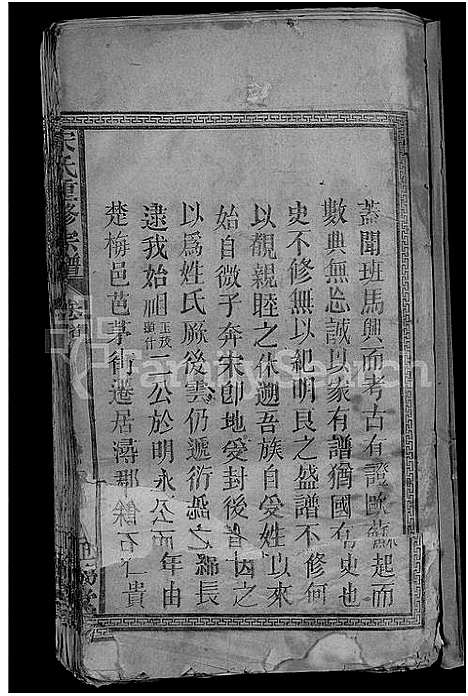 蓋聞班馬興而考古有證歐蘇起而
數典無忘誠以家有譜猶國有史也
史不修無以紀明良之盛譜不修何
以觀親睦之休遡吾族自受姓以來
始自微子奔宋卽地受封後者因之
以爲姓氏厥後雲仍遞衍之綿長
逮我始祖二公於明永公年由
楚梅邑芭茅街遷居潯郡餘石仁貴
宋氏重修宗譜
卷首
FamilySearch